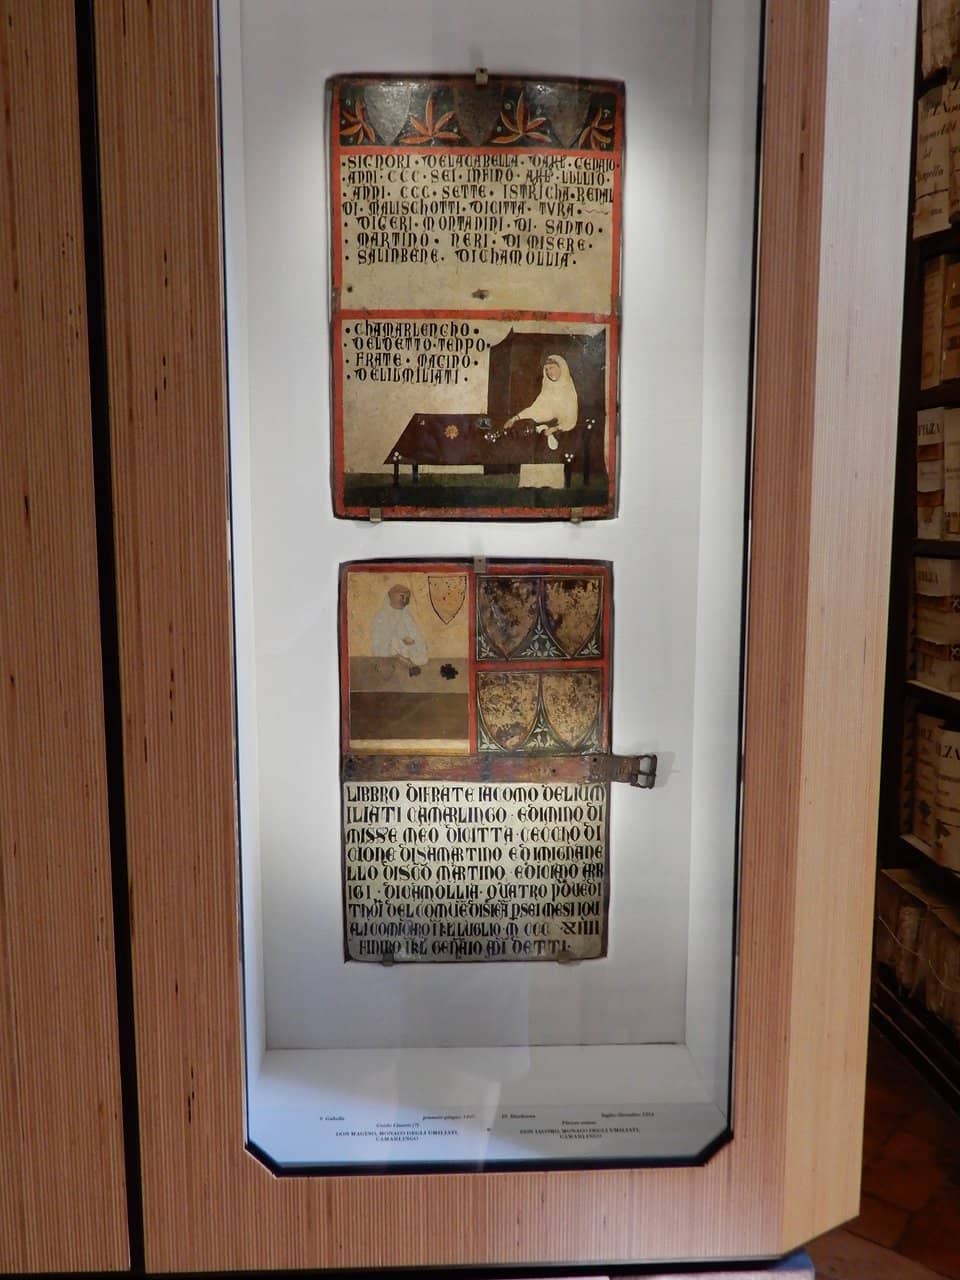 ·SIGNORI· DELACABELLA· DAKL· GENAIO·
·ANNI· CCC· SEI· INFINO· LULLIO·
·ANNI· CCC· SETTE· ISTRICHA· RENAL
DI· MALISCHOTTI· DICITTA· TVRA·
·DIGERI· MONTANINI· DI· SANTO·
·MARTINO· NERI· DI MISERE·
·SALINBENE· DICHAMOLLIA·
·CHAMARLENCHO·
·DELDETTO·TENPO·
·FRATE· MAGINO·
·DELILMILIATI·
LIBBRO DIFRATE IACOMO DELIUM
ILIATI CAMARLINGO· EDIMINO DI
MISSE MEO DICITTA· CECCHO DI
CIONE DISAMARTINO EDIMIGNANE
LLO DISCO MARTINO· EDICIANO ARR
IGI· DICAMOLLIA· QUATRO PDUEDI
TORI DEL COMUE DISIENA PSEI MESI IQU
ALI LUGLIO M CCC XIIII
FINIRO GENAIO DETTI·
DON MAGINO, MONACO DEGLI UMILIATI,
CAMARLINGO
DON IACOMO, MONACO DEGLI UMILIATI,
CAMARLINGO